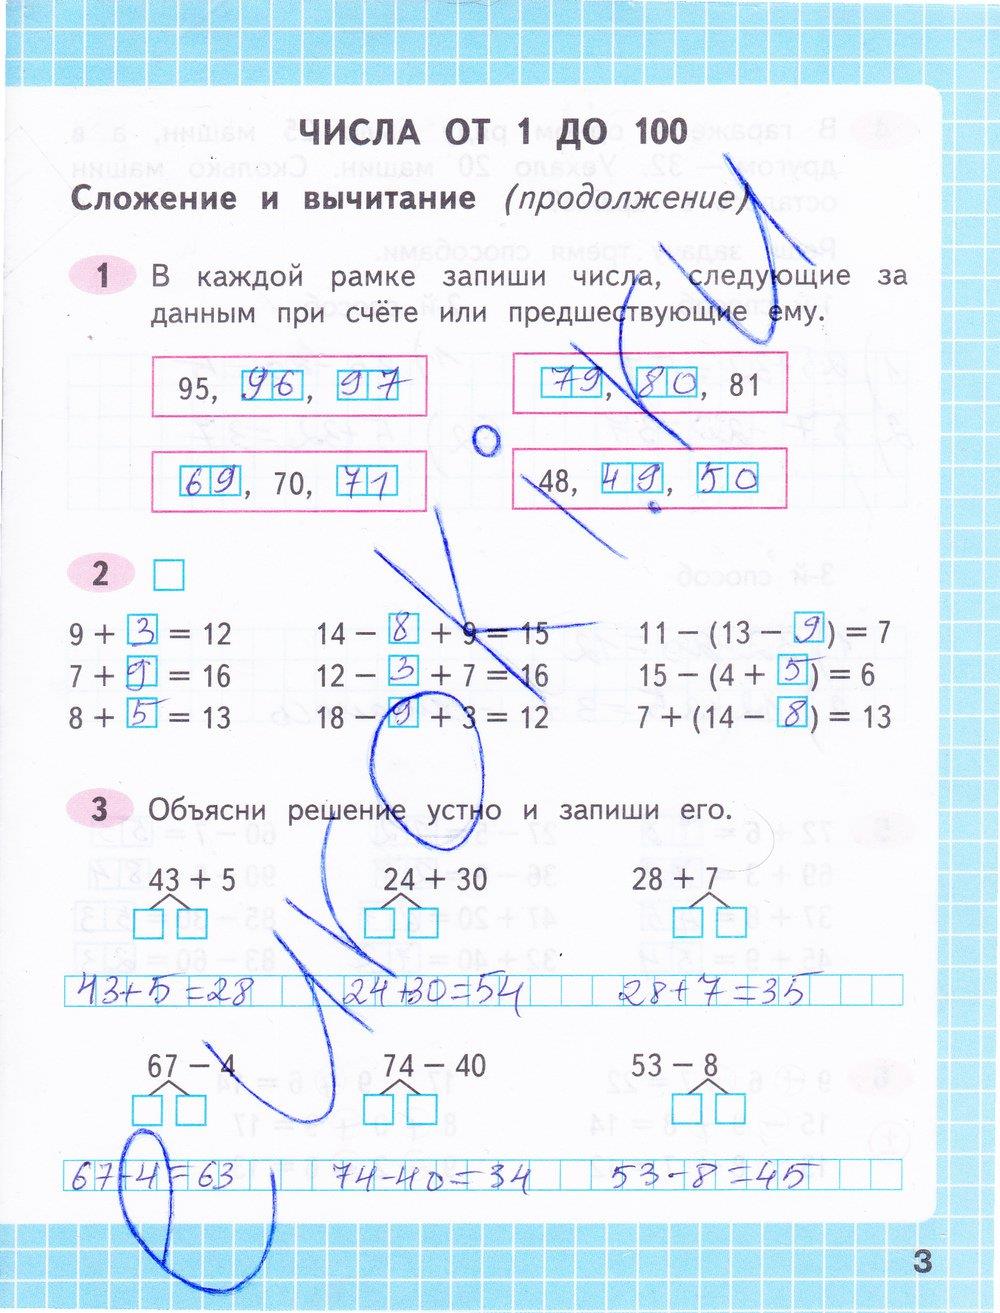 ЧИСЛА ОТ 1 ДО 100
Сложение и вычитание (продолжение)
1 В каждой рамке запиши числа, следующие за
данным при счёте или предшествующие ему.
95, 96, 97
79, 80, 81
69, 70, 71
48, 49, 50
2
9 + 3 = 12 14 − 8 + 9 = 15 11 − (13 − 9) = 7
7 + 9 = 16 12 − 3 + 7 = 16 15 − (4 + 5) = 6
8 + 5 = 13 18 − 9 + 3 = 12 7 + (14 − 8) = 13
3 Объясни решение устно и запиши его.
43 + 5 24 + 30 28 + 7
43+5=28 24+30=54 28+7=35
67 − 4 74 − 40 53 − 8
67-4=63 74-40=34 53-8=45
3